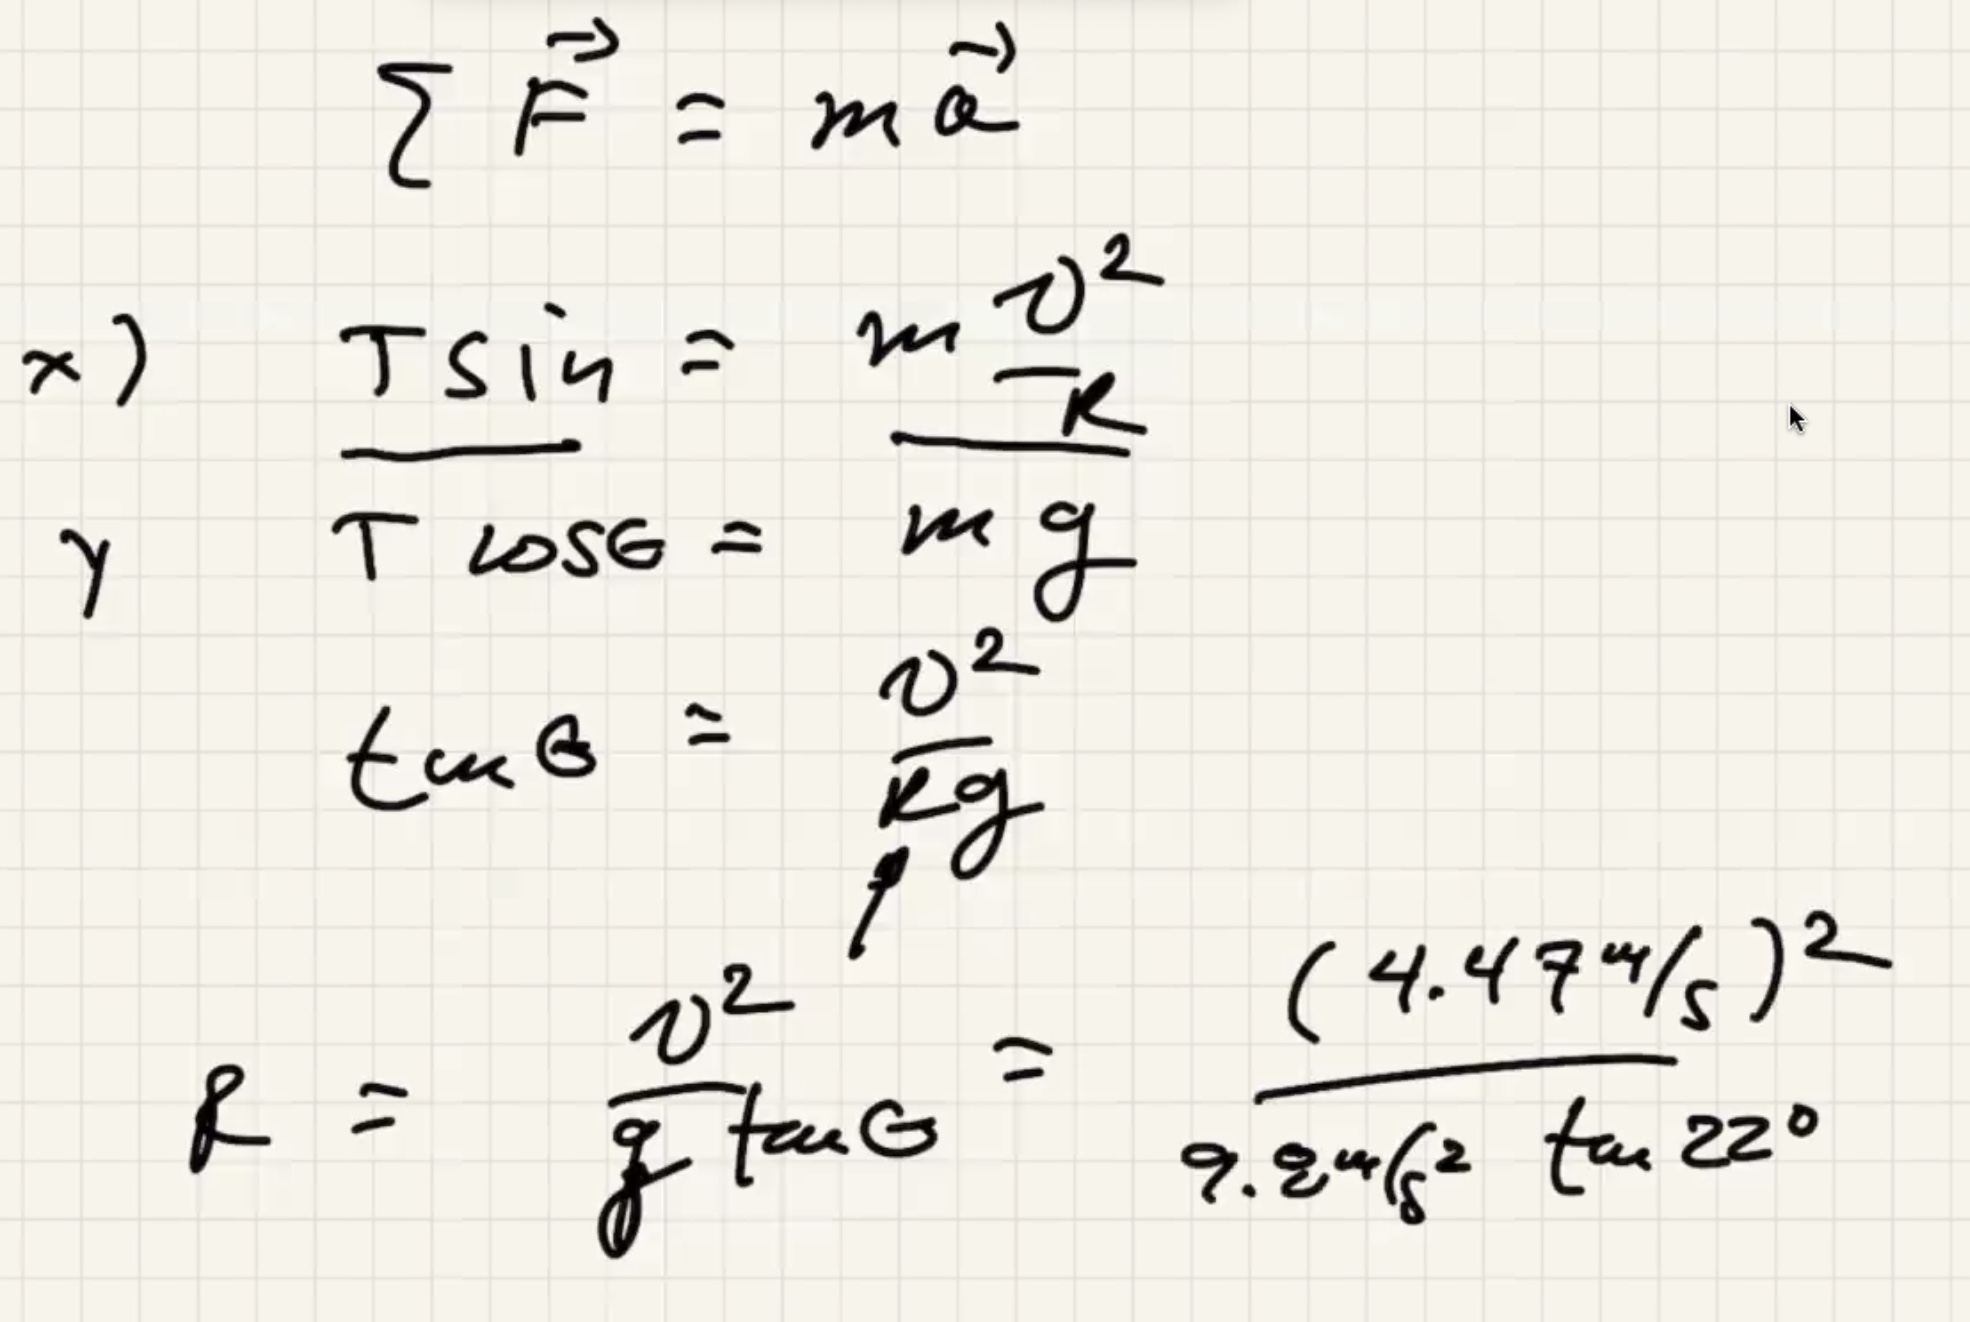 ∑ F⃗ = m a⃗
x) T sin = m v²/R
y T cosθ = m g
tanθ = v²/Rg
R = v²/(g tanθ) = (4.47 m/s)²/(9.8 m/s² tan 22°)